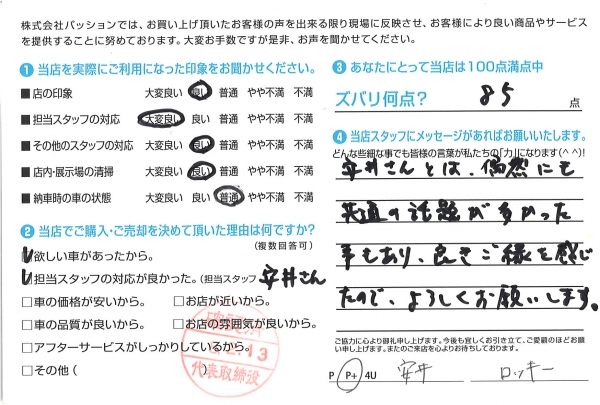 株式会社パッションでは、お買い上げ頂いたお客様の声を出来る限り現場に反映させ、お客様により良い商品やサービス
を提供することに努めております。大変お手数ですが是非、お声を聞かせてください。
1 当店を実際にご利用になった印象をお聞かせください。
■ 店の印象 大変良い 良い 普通 やや不満 不満
■ 担当スタッフの対応 大変良い 良い 普通 やや不満 不満
■ その他のスタッフの対応 大変良い 良い 普通 やや不満 不満
■ 店内・展示場の清掃 大変良い 良い 普通 やや不満 不満
■ 納車時の車の状態 大変良い 良い 普通 やや不満 不満
2 当店でご購入・ご売却を決めて頂いた理由は何ですか?
(複数回答可)
欲しい車があったから。
担当スタッフの対応が良かった。(担当スタッフ 安井さん
□車の価格が安いから。 □お店が近いから。
□車の品質が良いから。 □お店の雰囲気が良いから。
□アフターサービスがしっかりしているから。
□その他( )
2.13
代表取締役
3 あなたにとって当店は100点満点中
ズバリ何点? 85 点
4 当店スタッフにメッセージがあればお願いいたします。
どんな些細な事でも皆様の言葉が私たちの「力」になります(^^)!
安井さんとは、偶然にも
共通の話題が多かった
事もあり、良きご縁を感じ
たので、よろしくお願いします。
ご協力に心より御礼申し上げます。今後も宜しくお引き立て、ご愛顧のほどお願い申し上げます。またのご来店を心よりお待ちしております。
P P+ 4U 安井 ロッキー